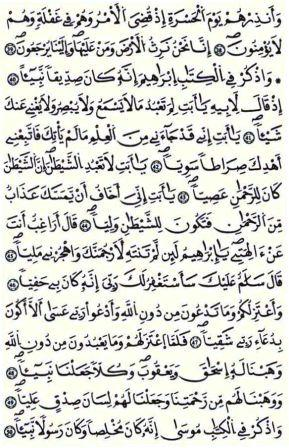 وَأَنذِرْهُمْ يَوْمَ ٱلْحَسْرَةِ إِذْ قُضِيَ ٱلْأَمْرُ وَهُمْ فِي غَفْلَةٍ وَهُمْ
لَا يُومِنُونَ إِنَّا نَحْنُ نَرِثُ ٱلْأَرْضَ وَمَنْ عَلَيْهَا وَإِلَيْنَا يُرْجَعُونَ
وَاذْكُرْ فِي ٱلْكِتَٰبِ إِبْرَٰهِيمَ إِنَّهُۥ كَانَ صِدِّيقاً نَّبِيٓـٔاً
إِذْ قَالَ لِأَبِيهِ يَٰٓأَبَتِ لِمَ تَعْبُدُ مَا لَا يَسْمَعُ وَلَا يُبْصِرُ وَلَا يُغْنِي عَنكَ
شَيْـٔاً يَٰٓأَبَتِ إِنِّي قَدْ جَآءَنِي مِنَ ٱلْعِلْمِ مَا لَمْ يَاتِكَ فَاتَّبِعْنِيٓ
أَهْدِكَ صِرَٰطاً سَوِيّاً يَٰٓأَبَتِ لَا تَعْبُدِ ٱلشَّيْطَٰنَ إِنَّ ٱلشَّيْطَٰنَ
كَانَ لِلرَّحْمَٰنِ عَصِيّاً يَٰٓأَبَتِ إِنِّيَ أَخَافُ أَنْ يَّمَسَّكَ عَذَابٌ
مِّنَ ٱلرَّحْمَٰنِ فَتَكُونَ لِلشَّيْطَٰنِ وَلِيّاً قَالَ أَرَاغِبٌ أَنتَ
عَنْ ءَالِهَتِي يَٰٓإِبْرَٰهِيمُ لَئِن لَّمْ تَنتَهِ لَأَرْجُمَنَّكَ وَاهْجُرْنِي مَلِيّاً
قَالَ سَلَٰمٌ عَلَيْكَ سَأَسْتَغْفِرُ لَكَ رَبِّيَ إِنَّهُۥ كَانَ بِي حَفِيّاً
وَأَعْتَزِلُكُمْ وَمَا تَدْعُونَ مِن دُونِ ٱللَّهِ وَأَدْعُواْ رَبِّي عَسَىٰٓ أَلَّآ أَكُونَ
بِدُعَآءِ رَبِّي شَقِيّاً فَلَمَّا ٱعْتَزَلَهُمْ وَمَا يَعْبُدُونَ مِن دُونِ ٱللَّهِ
وَهَبْنَا لَهُۥٓ إِسْحَٰقَ وَيَعْقُوبَ وَكُلّاً جَعَلْنَا نَبِيٓـٔاً
وَوَهَبْنَا لَهُم مِّن رَّحْمَتِنَا وَجَعَلْنَا لَهُمْ لِسَانَ صِدْقٍ عَلِيّاً
وَاذْكُرْ فِي ٱلْكِتَٰبِ مُوسَىٰٓ إِنَّهُۥ كَانَ مُخْلِصاً وَكَانَ رَسُولاً نَّبِيٓـٔاً